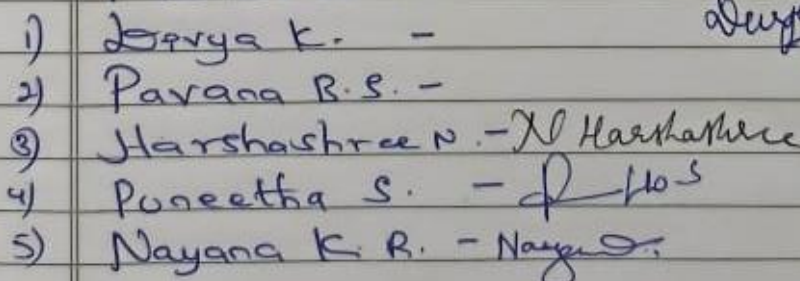 1) Divya K. -
2) Pavana B.S. -
3) Harshashree N. - N Harshashree
4) Puneetha S. -
5) Nayana K. R. - Nayana